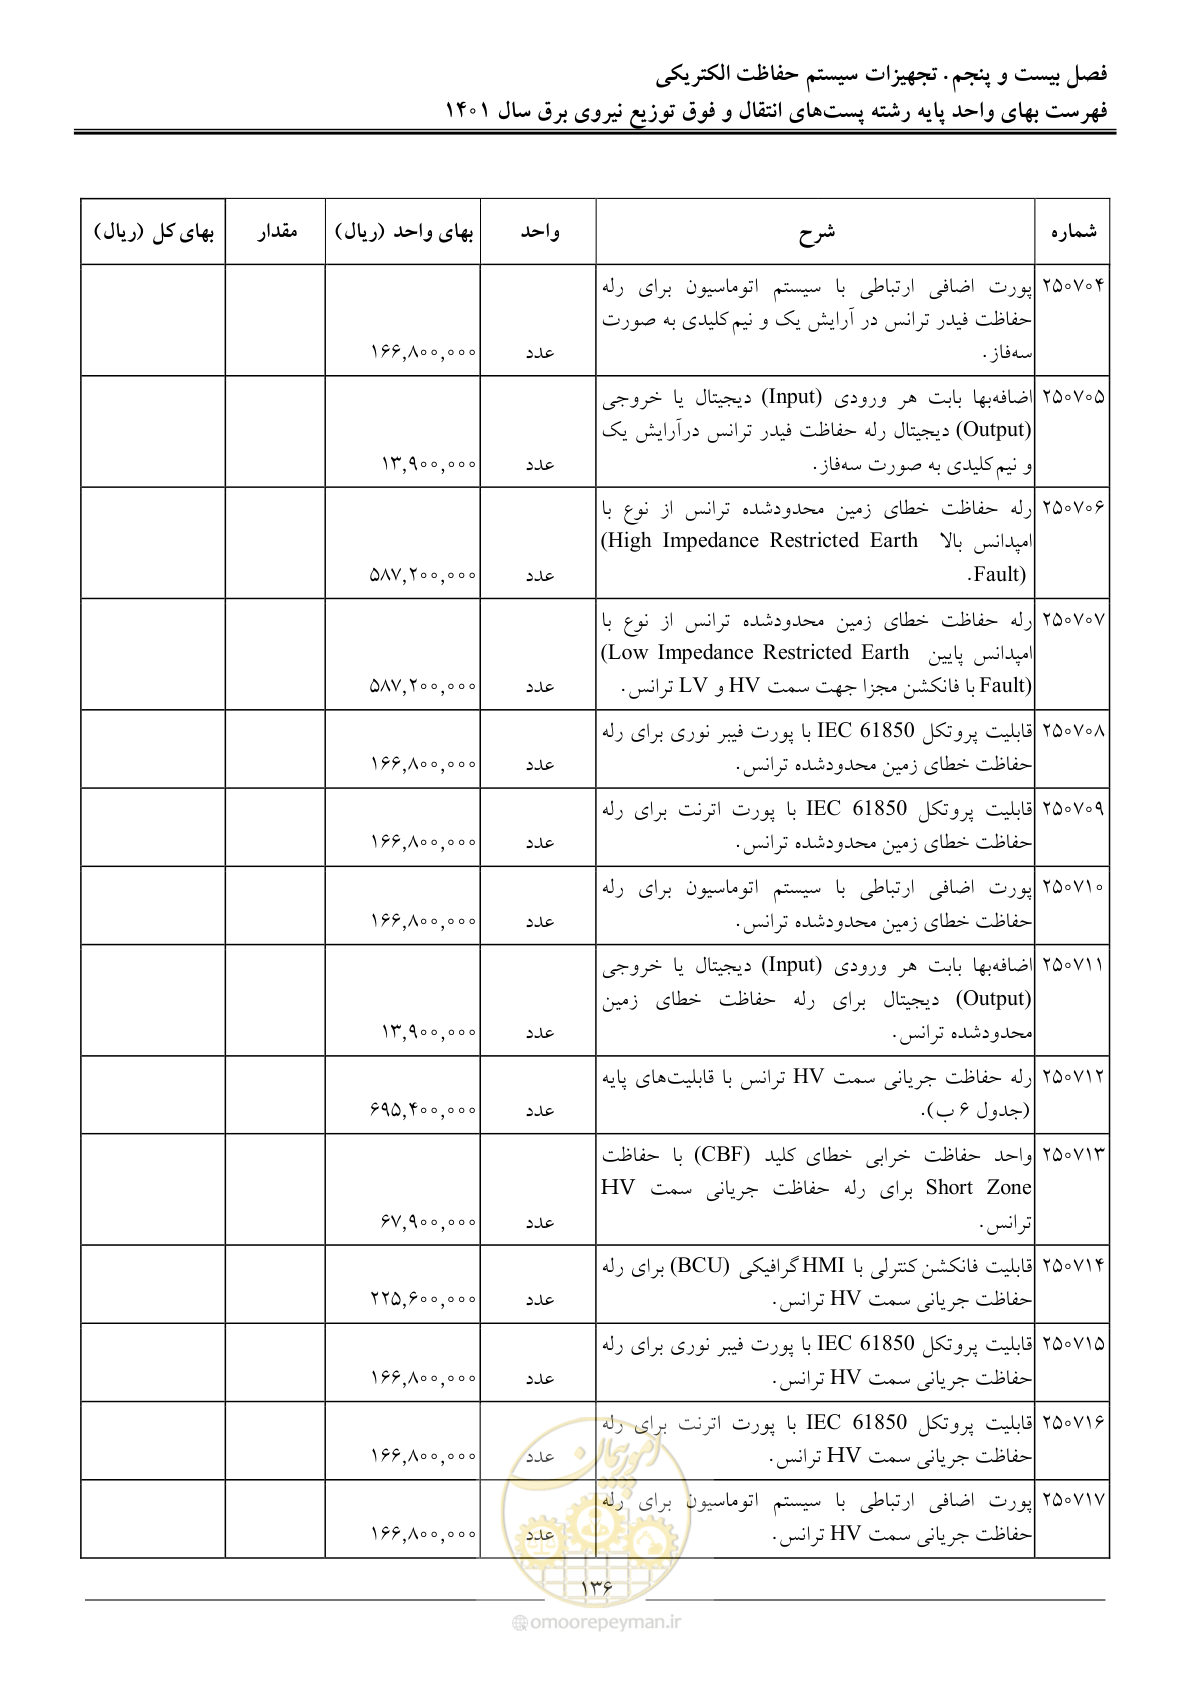 فصل بیست و پنجم. تجهیزات سیستم حفاظت الکتریکی
فهرست بهای واحد پایه رشته پست‌های انتقال و فوق توزیع نیروی برق سال ۱۴۰۱
شماره شرح واحد بهای واحد (ریال) مقدار بهای کل (ریال)
۲۵۰۷۰۴ پورت اضافی ارتباطی با سیستم اتوماسیون برای رله
حفاظت فیدر ترانس در آرایش یک و نیم‌کلیدی به صورت
سه‌فاز. عدد ۱۶۶,۸۰۰,۰۰۰
۲۵۰۷۰۵ اضافه‌بها بابت هر ورودی (Input) دیجیتال یا خروجی
(Output) دیجیتال رله حفاظت فیدر ترانس درآرایش یک
و نیم‌کلیدی به صورت سه‌فاز. عدد ۱۳,۹۰۰,۰۰۰
۲۵۰۷۰۶ رله حفاظت خطای زمین محدودشده ترانس از نوع با
امپدانس بالا (High Impedance Restricted Earth
Fault). عدد ۵۸۷,۲۰۰,۰۰۰
۲۵۰۷۰۷ رله حفاظت خطای زمین محدودشده ترانس از نوع با
امپدانس پایین (Low Impedance Restricted Earth
Fault) با فانکشن مجزا جهت سمت HV و LV ترانس. عدد ۵۸۷,۲۰۰,۰۰۰
۲۵۰۷۰۸ قابلیت پروتکل IEC 61850 با پورت فیبر نوری برای رله
حفاظت خطای زمین محدودشده ترانس. عدد ۱۶۶,۸۰۰,۰۰۰
۲۵۰۷۰۹ قابلیت پروتکل IEC 61850 با پورت اترنت برای رله
حفاظت خطای زمین محدودشده ترانس. عدد ۱۶۶,۸۰۰,۰۰۰
۲۵۰۷۱۰ پورت اضافی ارتباطی با سیستم اتوماسیون برای رله
حفاظت خطای زمین محدودشده ترانس. عدد ۱۶۶,۸۰۰,۰۰۰
۲۵۰۷۱۱ اضافه‌بها بابت هر ورودی (Input) دیجیتال یا خروجی
(Output) دیجیتال برای رله حفاظت خطای زمین
محدودشده ترانس. عدد ۱۳,۹۰۰,۰۰۰
۲۵۰۷۱۲ رله حفاظت جریانی سمت HV ترانس با قابلیت‌های پایه
(جدول ۶ ب). عدد ۶۹۵,۴۰۰,۰۰۰
۲۵۰۷۱۳ واحد حفاظت خرابی خطای کلید (CBF) با حفاظت
Short Zone برای رله حفاظت جریانی سمت HV
ترانس. عدد ۶۷,۹۰۰,۰۰۰
۲۵۰۷۱۴ قابلیت فانکشن کنترلی با HMI گرافیکی (BCU) برای رله
حفاظت جریانی سمت HV ترانس. عدد ۲۲۵,۶۰۰,۰۰۰
۲۵۰۷۱۵ قابلیت پروتکل IEC 61850 با پورت فیبر نوری برای رله
حفاظت جریانی سمت HV ترانس. عدد ۱۶۶,۸۰۰,۰۰۰
۲۵۰۷۱۶ قابلیت پروتکل IEC 61850 با پورت اترنت برای رله
حفاظت جریانی سمت HV ترانس. عدد ۱۶۶,۸۰۰,۰۰۰
۲۵۰۷۱۷ پورت اضافی ارتباطی با سیستم اتوماسیون برای رله
حفاظت جریانی سمت HV ترانس. عدد ۱۶۶,۸۰۰,۰۰۰
امور پیمان
۱۳۶
omoorepeyman.ir